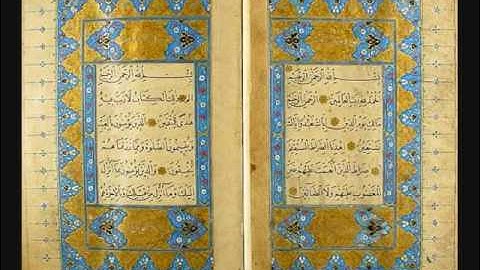 بِسْمِ اللهِ الرَّحْمٰنِ الرَّحِيمِ
الْحَمْدُ لِلّٰهِ رَبِّ الْعَالَمِينَ الرَّحْمٰنِ الرَّحِيمِ
مَالِكِ يَوْمِ الدِّينِ إِيَّاكَ نَعْبُدُ وَإِيَّاكَ
نَسْتَعِينُ اهْدِنَا الصِّرَاطَ الْمُسْتَقِيمَ
صِرَاطَ الَّذِينَ أَنْعَمْتَ عَلَيْهِمْ غَيْرِ
الْمَغْضُوبِ عَلَيْهِمْ وَلَا الضَّالِّينَ
بِسْمِ اللهِ الرَّحْمٰنِ الرَّحِيمِ
الم ذٰلِكَ الْكِتَابُ لَا رَيْبَ فِيهِ
هُدًى لِلْمُتَّقِينَ الَّذِينَ يُؤْمِنُونَ بِالْغَيْبِ
وَيُقِيمُونَ الصَّلٰوةَ وَمِمَّا رَزَقْنَاهُمْ
يُنْفِقُونَ وَالَّذِينَ يُؤْمِنُونَ بِمَا أُنْزِلَ
إِلَيْكَ وَمَا أُنْزِلَ مِنْ قَبْلِكَ